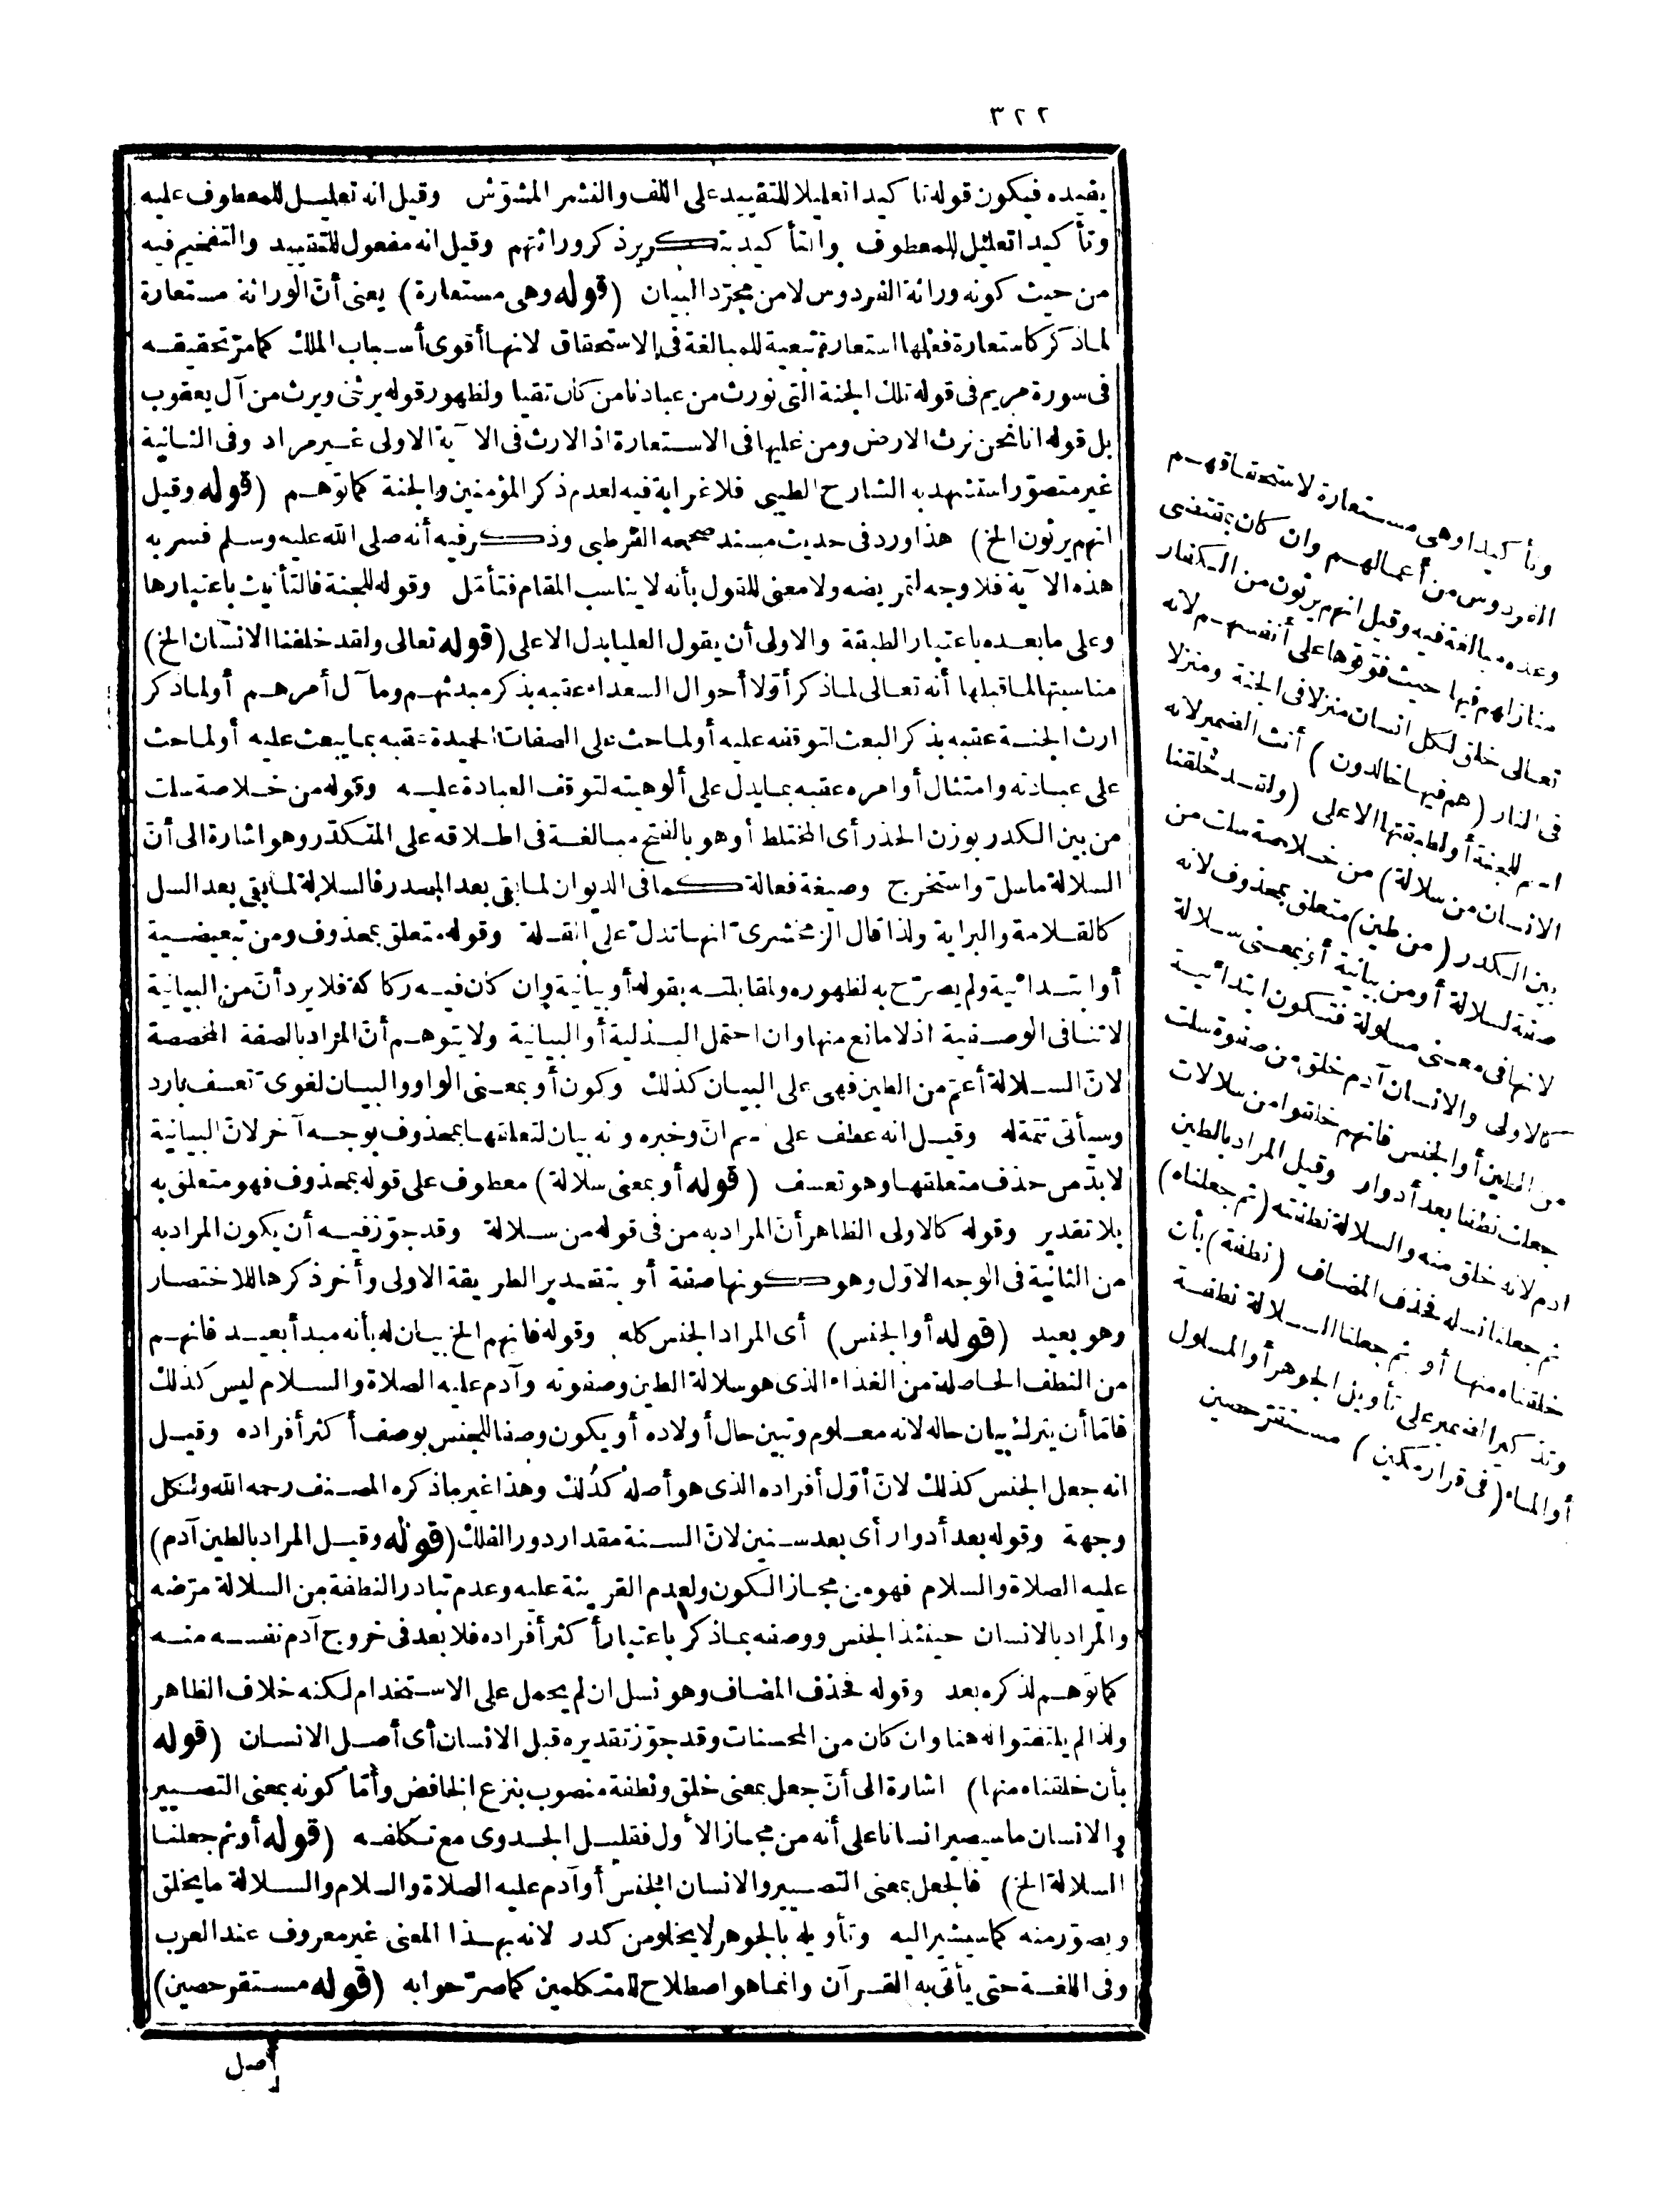 ٣٢٢
يقيده فيكون قوله تأكيدا تعليلا للتقييد على اللف والنشر المشوّش وقيل انه تعليل للمعطوف عليه
وتأكيدا تعليل للمعطوف والتأكيد بتكرير ذكر وراثتهم وقيل انه مفعول للتقييد والتفخيم فيه
من حيث كونه وراثة الفردوس لا من مجرّد البيان (قوله وهى مستعارة) يعنى أنّ الوراثة مستعارة
لما ذكر كاستعارة فعلها استعارة تبعية للمبالغة فى الاستحقاق لانها أقوى أسباب الملك كما مرّ تحقيقه
فى سورة مريم فى قوله تلك الجنة التى نورث من عبادنا من كان تقيا ولظهور قوله يرثنى ويرث من آل يعقوب
بل قوله انا نحن نرث الارض ومن عليها فى الاستعارة اذ الارث فى الآية الاولى غير مراد وفى الثانية
غير متصوّر استشهد به الشارح الطيبى فلا غرابة فيه لعدم ذكر المؤمنين والجنة كما توهم (قوله وقيل
انهم يرثون الخ) هذا ورد فى حديث مسند صححه القرطبى وذكر فيه أنه صلى الله عليه وسلم فسر به
هذه الآية فلا وجه لتمريضه ولا معنى للقول بأنه لا يناسب المقام فتأمّل وقوله للجنة فالتأنيث باعتبارها
وعلى ما بعده باعتبار الطبقة والاولى أن يقول العليا بدل الاعلى (قوله تعالى ولقد خلقنا الانسان الخ)
مناسبتها لما قبلها أنه تعالى لما ذكر أوّلا أحوال السعداء عقبه بذكر مبدئهم ومآل أمرهم أو لما ذكر
ارث الجنة عقبه بذكر البعث لتوقفه عليه أو لما حث على الصفات الحميدة عقبه بما يبعث عليه أو لما حث
على عبادته وامتثال أوامره عقبه بما يدل على ألوهيته لتوقف العبادة عليه وقوله من خلاصة سلت
من بين الكدر بوزن الحذر أى المختلط أو هو بالفتح مبالغة فى اطلاقه على المتكدّر وهو اشارة الى أنّ
السلالة ما سلّ واستخرج وصيغة فعالة كما فى الديوان لما بقى بعد المصدر فالسلالة لما بقى بعد السل
كالقلامة والبراية ولذا قال الزمخشرىّ انها تدلّ على القلة وقوله متعلق بمحذوف ومن تبعيضية
أو ابتدائية ولم يصرّح به لظهوره ولمقابلته بقوله أو بيانية وان كان فيه ركاكة فلا يرد أنّ من البيانية
لا تنافى الوصفية اذ لا مانع منها وان احتمل البدلية أو البيانية ولا يتوهم أنّ المراد بالصفة المخصصة
لانّ السلالة أعمّ من الطين فهى على البيان كذلك وكون أو بمعنى الواو والبيان لغوىّ تعسف بارد
وسيأتى تتمة له وقيل انه عطف على اسم انّ وخبره وانه بيان لتعلقها بمحذوف بوجه آخر لانّ البيانية
لا بدّ من حذف متعلقها وهو تعسف (قوله أو بمعنى سلالة) معطوف على قوله بمحذوف فهو متعلق به
بلا تقدير وقوله كالاولى الظاهر أنّ المراد به من فى قوله من سلالة وقد جوّز فيه أن يكون المراد به
من الثانية فى الوجه الاوّل وهو كونها صفة أو بتقدير الطريقة الاولى وأخر ذكرها للاختصار
وهو بعيد (قوله أو الجنس) أى المراد الجنس كله وقوله فانهم الخ بيان له بأنه مبدأ بعيد فانهم
من النطف الحاصلة من الغذاء الذى هو سلالة الطين وصفوته وآدم عليه الصلاة والسلام ليس كذلك
فامّا أن يترك بيان حاله لانه معلوم وتبين حال أولاده أو يكون وصفا للجنس بوصف أكثر أفراده وقيل
انه جعل الجنس كذلك لانّ أوّل أفراده الذى هو أصله كذلك وهذا غير ما ذكره المصنف رحمه الله ولكل
وجهة وقوله بعد أدوار أى بعد سنين لانّ السنة مقدار دور الفلك (قوله وقيل المراد بالطين آدم)
عليه الصلاة والسلام فهو من مجاز الكون ولعدم القرينة عليه وعدم تبادر النطفة من السلالة مرّضه
والمراد بالانسان حينئذ الجنس ووصفه بما ذكر باعتبار أكثر أفراده فلا بعد فى خروج آدم نفسه منه
كما توهم لذكره بعد وقوله فحذف المضاف وهو نسل ان لم يحمل على الاستخدام لكنه خلاف الظاهر
ولذا لم يلتفتوا له هنا وان كان من المحسنات وقد جوّز تقديره قبل الانسان أى أصل الانسان (قوله
بأن خلقناه منها) اشارة الى أنّ جعل بمعنى خلق ونطفة منصوب بنزع الخافض وأمّا كونه بمعنى التصيير
والانسان ما سيصير انسانا على أنه من مجاز الأول فقليل الجدوى مع تكلفه (قوله أو ثم جعلنا
السلالة الخ) فالجعل بمعنى التصيير والانسان الجنس أو آدم عليه الصلاة والسلام والسلالة ما يخلق
ويصوّر منه كما سيشير اليه وتأويله بالجوهر لا يخلو من كدر لانه بهذا المعنى غير معروف عند العرب
وفى اللغة حتى يأتى به القرآن وانما هو اصطلاح للمتكلمين كما صرّحوا به (قوله مستقر حصين)
أصل
وتأكيدا وهى مستعارة لاستحقاقهم
الفردوس من أعمالهم وان كان بمقتضى
وعده مبالغة فيه وقيل انهم يرثون من الكفار
منازلهم فيها حيث فوّتوها على أنفسهم لانه
تعالى خلق لكل انسان منزلا فى الجنة ومنزلا
فى النار (هم فيها خالدون) أنث الضمير لانه
اسم للجنة أو لطبقتها الاعلى (ولقد خلقنا
الانسان من سلالة) من خلاصة سلت من
بين الكدر (من طين) متعلق بمحذوف لانه
صفة لسلالة أو من بيانية أو بمعنى سلالة
لانها فى معنى مسلولة فتكون ابتدائية
كالاولى والانسان آدم خلق من صفوة سلت
من الطين أو الجنس فانهم خلقوا من سلالات
جعلت نطفا بعد أدوار وقيل المراد بالطين
ادم لانه خلق منه والسلالة نطفته (ثم جعلناه)
ثم جعلنا نسله فحذف المضاف (نطفة) بأن
خلقناه منها أو ثم جعلنا السلالة نطفة
وتذكير الضمير على تأويل الجوهر أو المسلول
أو الماء (فى قرار مكين) مستقرّ حصين